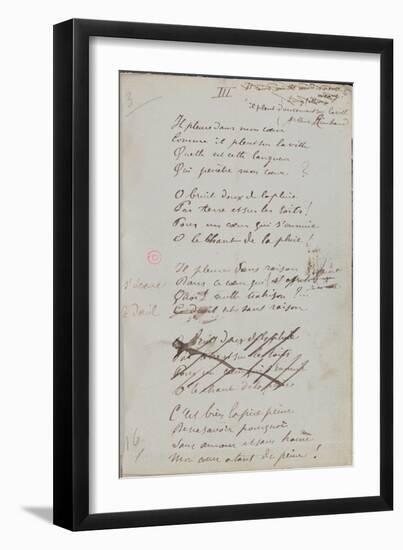 III
3
il pleut doucement sur la ville
(Arthur Rimbaud
Il pleure dans mon cœur
Comme il pleut sur la ville
Quelle est cette langueur
Qui pénètre mon cœur ?
O bruit doux de la pluie
Par terre et sur les toits !
Pour un cœur qui s'ennuie
O le chant de la pluie !
Il pleure sans raison
Dans ce cœur qui
Quoi ! nulle trahison ? ...
Ce deuil est sans raison
O bruit doux de la pluie
Par terre et sur les toits
Pour un cœur qui s'ennuie
O le chant de la pluie
C'est bien la pire peine
De ne savoir pourquoi
Sans amour et sans haine
Mon cœur a tant de peine !
16